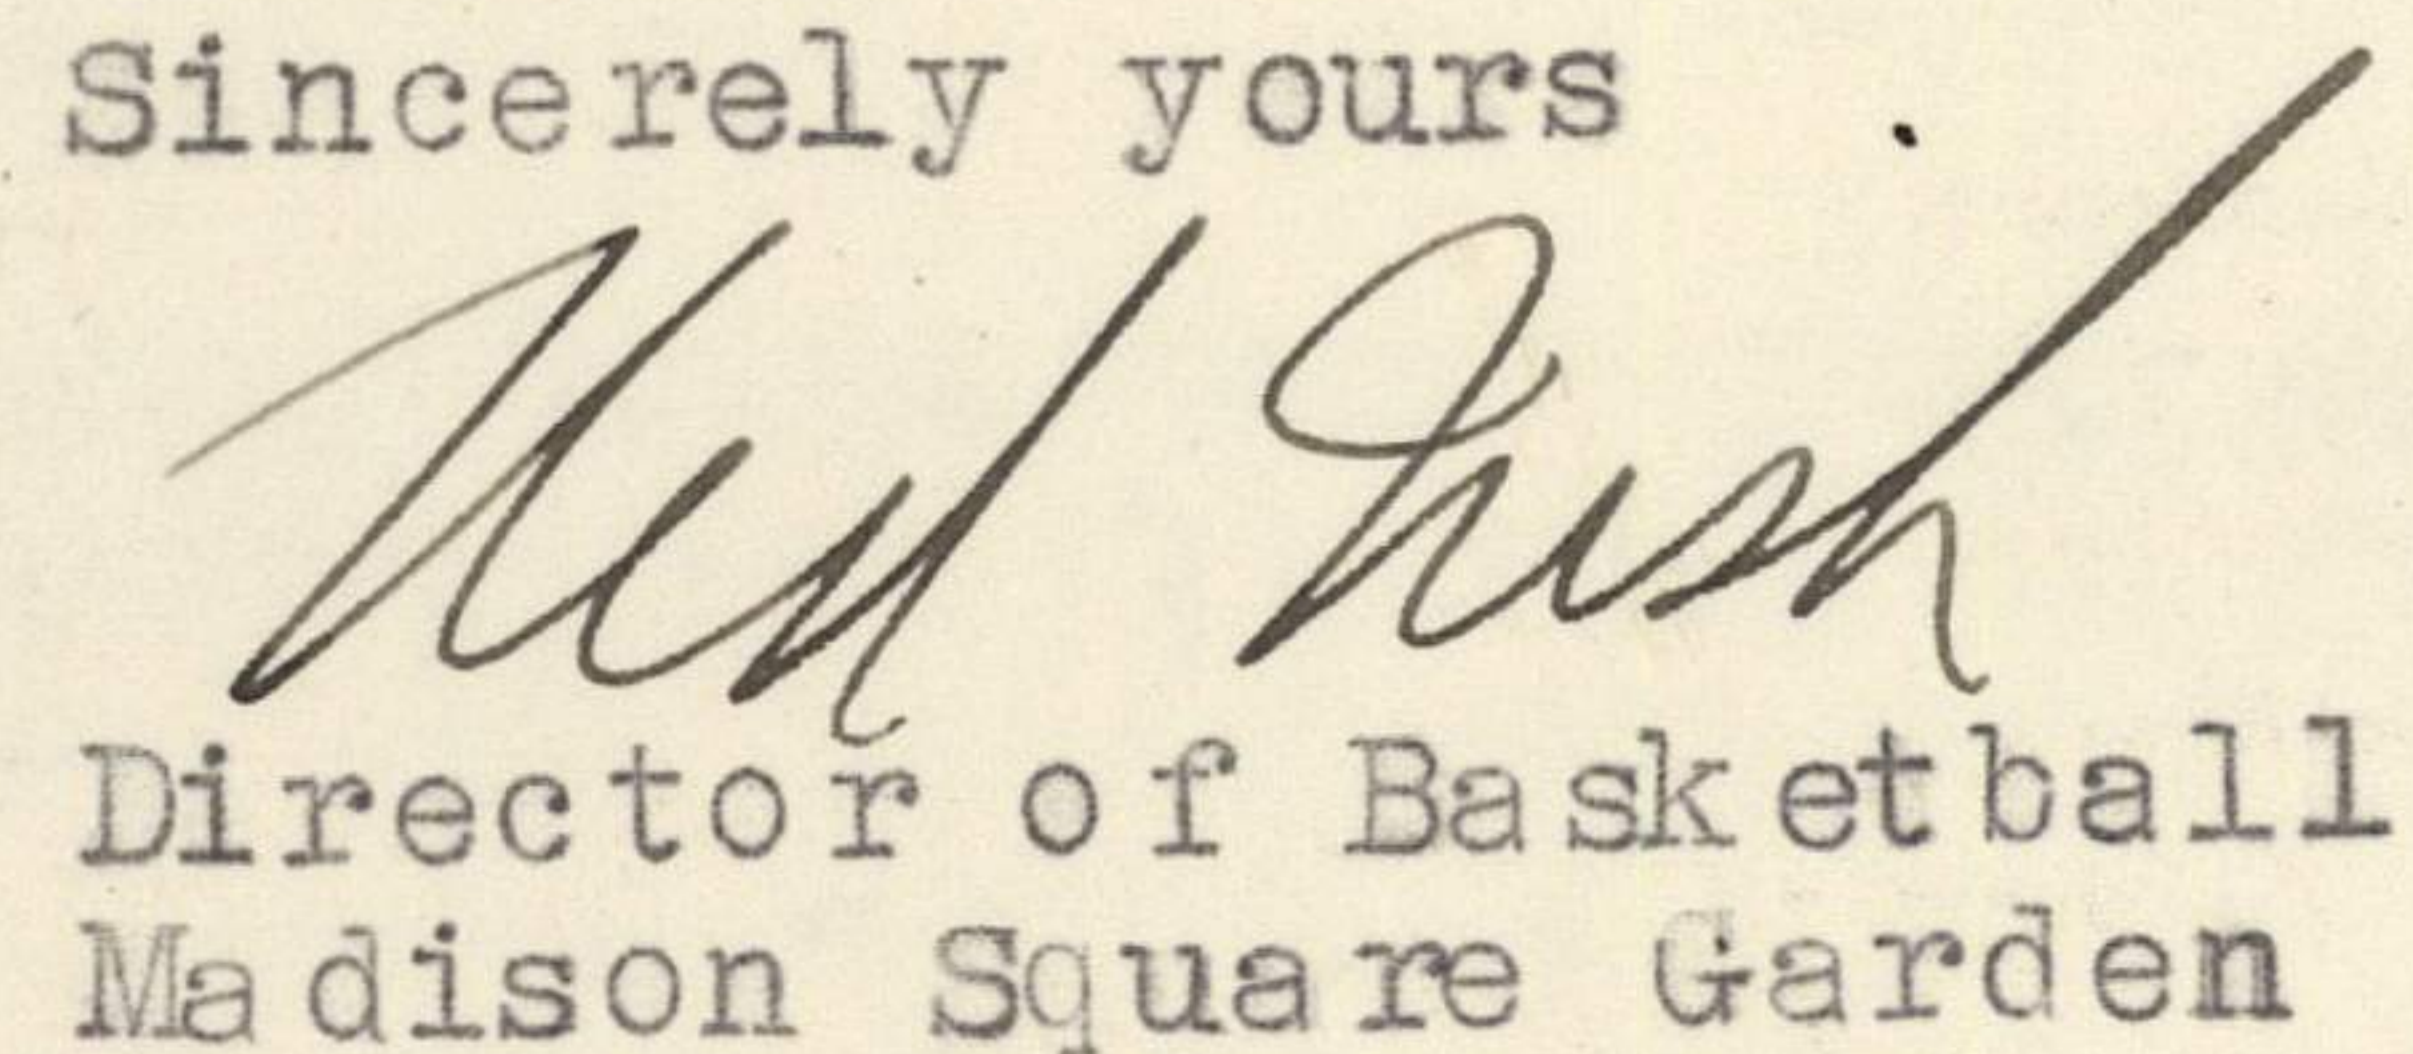 Sincerely yours
Ned Irish
Director of Basketball
Madison Square Garden